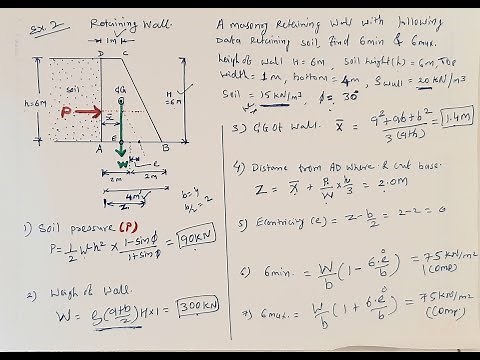 Ex.2
Retaining Wall.
A masonry Retaining Wall with following
Data retaining soil, find 6min & 6max.
heigh of wall H=6m, soil height(h)=6m, Top
width = 1m, bottom = 4m, ρwall = 20 KN/m3
Soil = 15 KN/m3, φ = 30°
1m
D C
soil
h=6m
P
G
x̄
H
=6m
A E B
W
e
2m 2m
4m
Z
b=4
b/2 = 2
1) Soil pressure (P)
P = 1/2 w h² × 1-sinφ/1+sinφ = 90KN
2) Weigh of Wall.
W = ρ(a+b/2)H×1 = 300KN
3) CG of Wall. x̄ = a²+ab+b²/3(a+b) = 1.4m
4) Distance from AD where R cut base.
Z = x̄ + P/W × h/3 = 2.0m
5) Ecentricity (e) = z-b/2 = 2-2 = 0
6) 6min. = W/b (1 - 6.e/b) = 75KN/m2
(comp)
7) 6max. = W/b (1 + 6.e/b) = 75KN/m2
(comp)